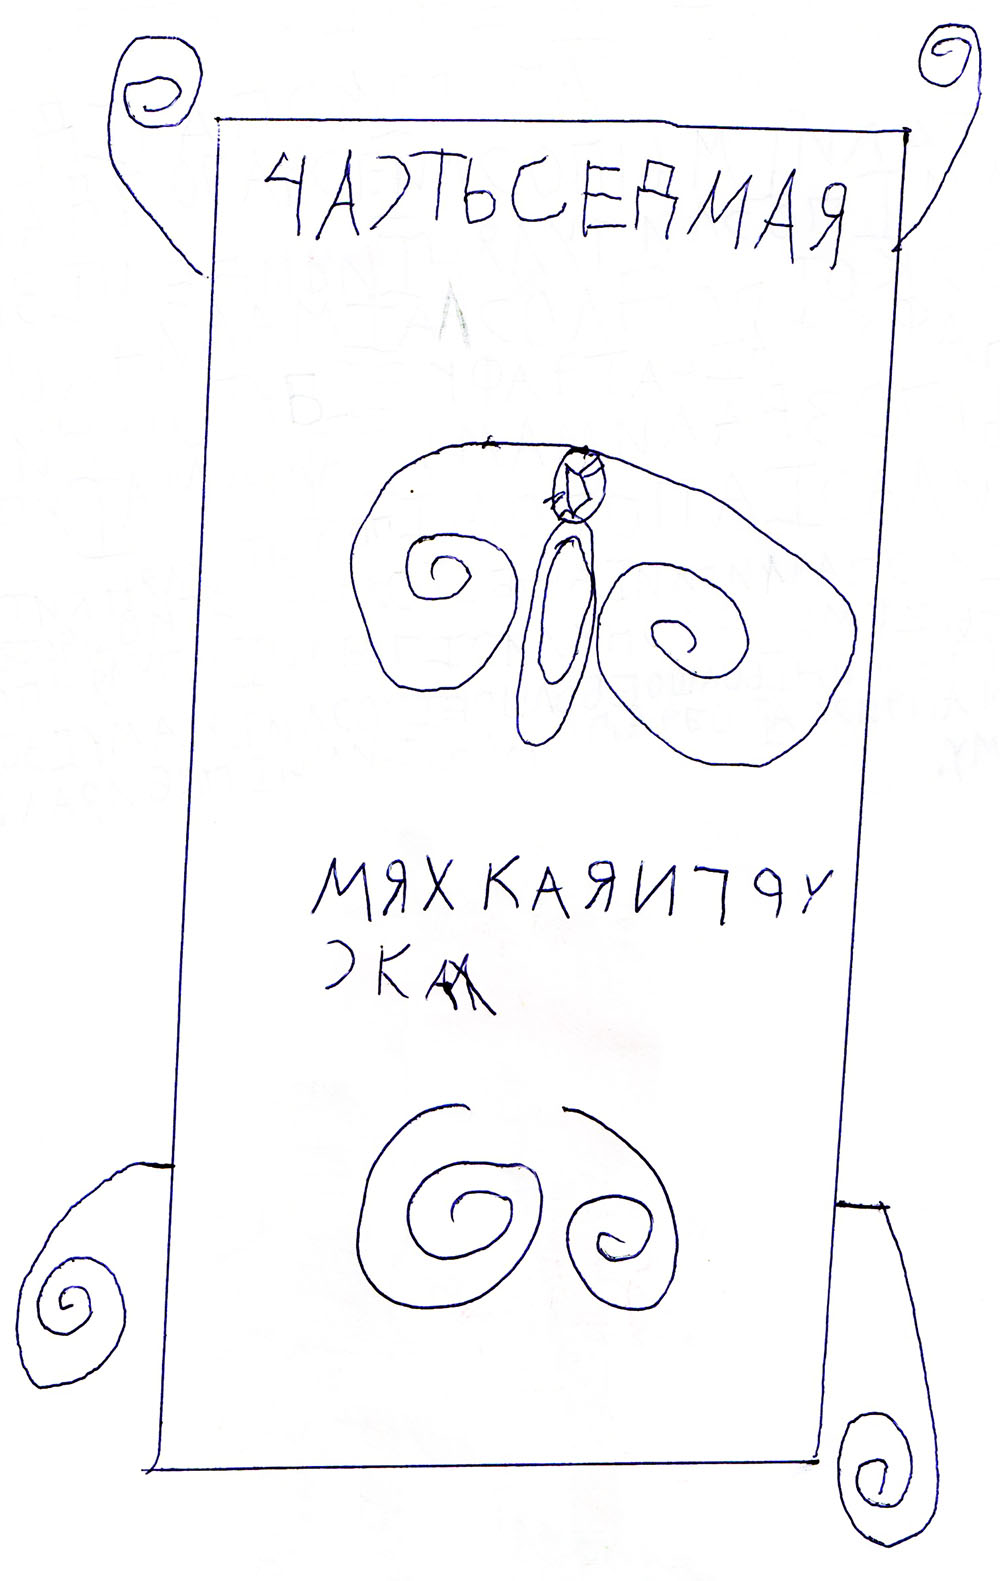 ЧАСТЬСЕДМАЯ
МЯХКАЯИГРУ
СКА